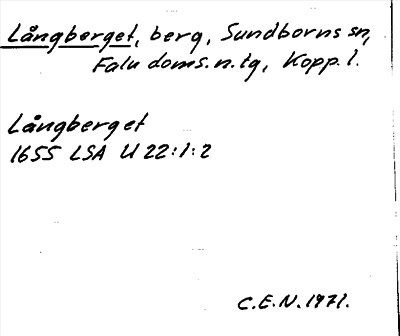 Långberget, berg, Sundborns sn,
Falu doms.n.tg, Kopp.l.
Långberget
1655 LSA U 22:1:2
C.E.N. 1971.